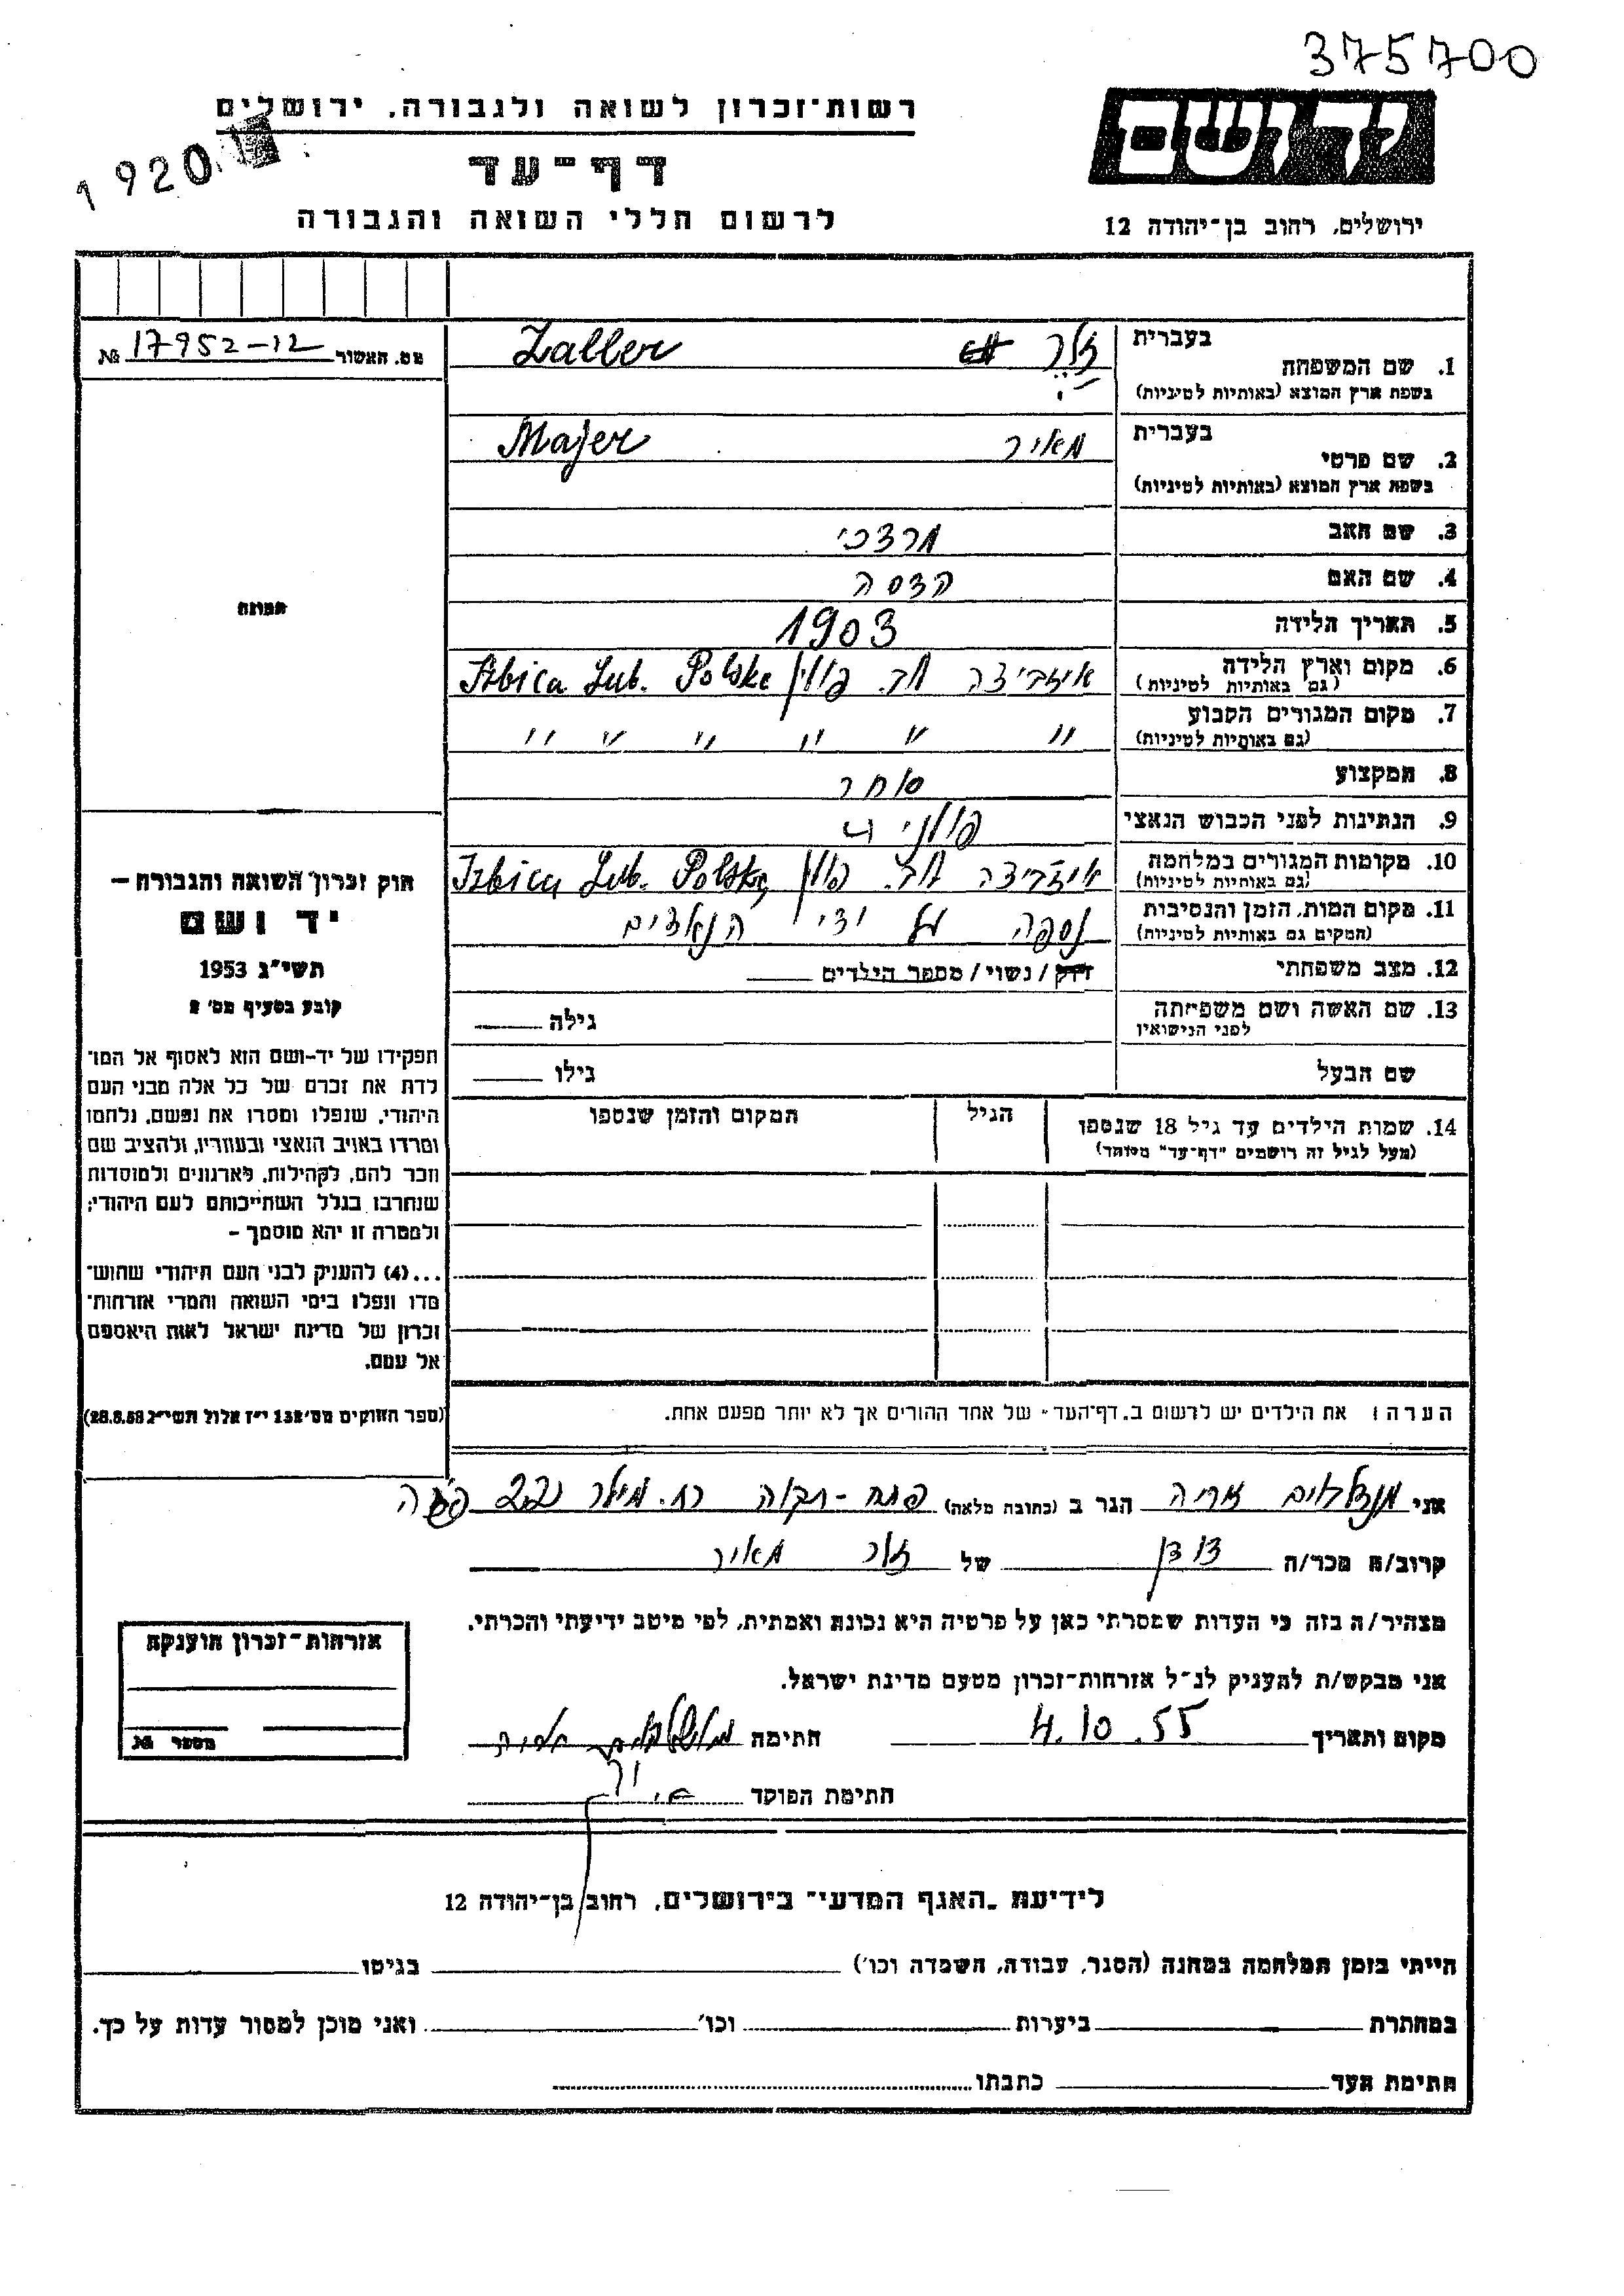 375700
רשות-זכרון לשואה ולגבורה, ירושלים
1920
דף-עד
לרשום חללי השואה והגבורה
ידושם
ירושלים, רחוב בן-יהודה 12
מס. האשור 17952-12 №
1. שם המשפחה
בעברית זלר Zaller
בשפת ארץ המוצא (באותיות לטיניות)
2. שם פרטי
בעברית מאיר Majer
בשפת ארץ המוצא (באותיות לטיניות)
3. שם האב מרדכי
4. שם האם הדסה
5. תאריך הלידה 1903
6. מקום וארץ הלידה איזביצה לוב. פולין Izbica Lub. Polska
(גם באותיות לטיניות)
7. מקום המגורים הקבוע " " " " " "
(גם באותיות לטיניות)
8. המקצוע סוחר
9. הנתינות לפני הכבוש הנאצי פולנית
10. מקומות המגורים במלחמה איזביצה לוב. פולין Izbica Lub. Polska
(גם באותיות לטיניות)
11. מקום המות, הזמן והנסיבות נספה על ידי הנאצים
(המקום גם באותיות לטיניות)
12. מצב משפחתי רוק / נשוי / מספר הילדים
13. שם האשה ושם משפחתה גילה
לפני הנישואין
שם הבעל גילו
14. שמות הילדים עד גיל 18 שנספו הגיל המקום והזמן שנספו
(מעל לגיל זה רושמים "דף-עד" מיוחד)
תמונה
חוק זכרון השואה והגבורה —
יד ושם
תשי"ג 1953
קובע בסעיף מס' 2
תפקידו של יד-ושם הוא לאסוף אל המו־
לדת את זכרם של כל אלה מבני העם
היהודי, שנפלו ומסרו את נפשם, נלחמו
ומרדו באויב הנאצי ובעוזריו, ולהציב שם
וזכר להם, לקהילות, לארגונים ולמוסדות
שנחרבו בגלל השתייכותם לעם היהודי;
ולמטרה זו יהא מוסמך —
...(4) להעניק לבני העם היהודי שהוש־
מדו ונפלו בימי השואה והמרי אזרחות־
זכרון של מדינת ישראל לאות היאספם
אל עמם.
(ספר החוקים מס' 132 י"ז אלול תשי"ג 28.8.53)
הערה: את הילדים יש לרשום ב„דף-העד" של אחד ההורים אך לא יותר מפעם אחת.
אני מנדלבוים אריה הגר ב (כתובת מלאה) פתח-תקוה רח.
קרוב/ה מכר/ה דודן של זלר מאיר
מצהיר/ה בזה כי העדות שמסרתי כאן על פרטיה היא נכונה ואמתית, לפי מיטב ידיעתי והכרתי.
אני מבקש/ת להעניק לנ"ל אזרחות-זכרון מטעם מדינת ישראל.
מקום ותאריך 4.10.55 חתימה
חתימת הפוקד
אזרחות-זכרון הוענקה
מספר №
לידיעת „האגף המדעי" בירושלים, רחוב בן-יהודה 12
הייתי בזמן המלחמה במחנה (הסגר, עבודה, השמדה וכו') בגיטו
במחתרת ביערות וכו' ואני מוכן למסור עדות על כך.
חתימת העד כתבתו